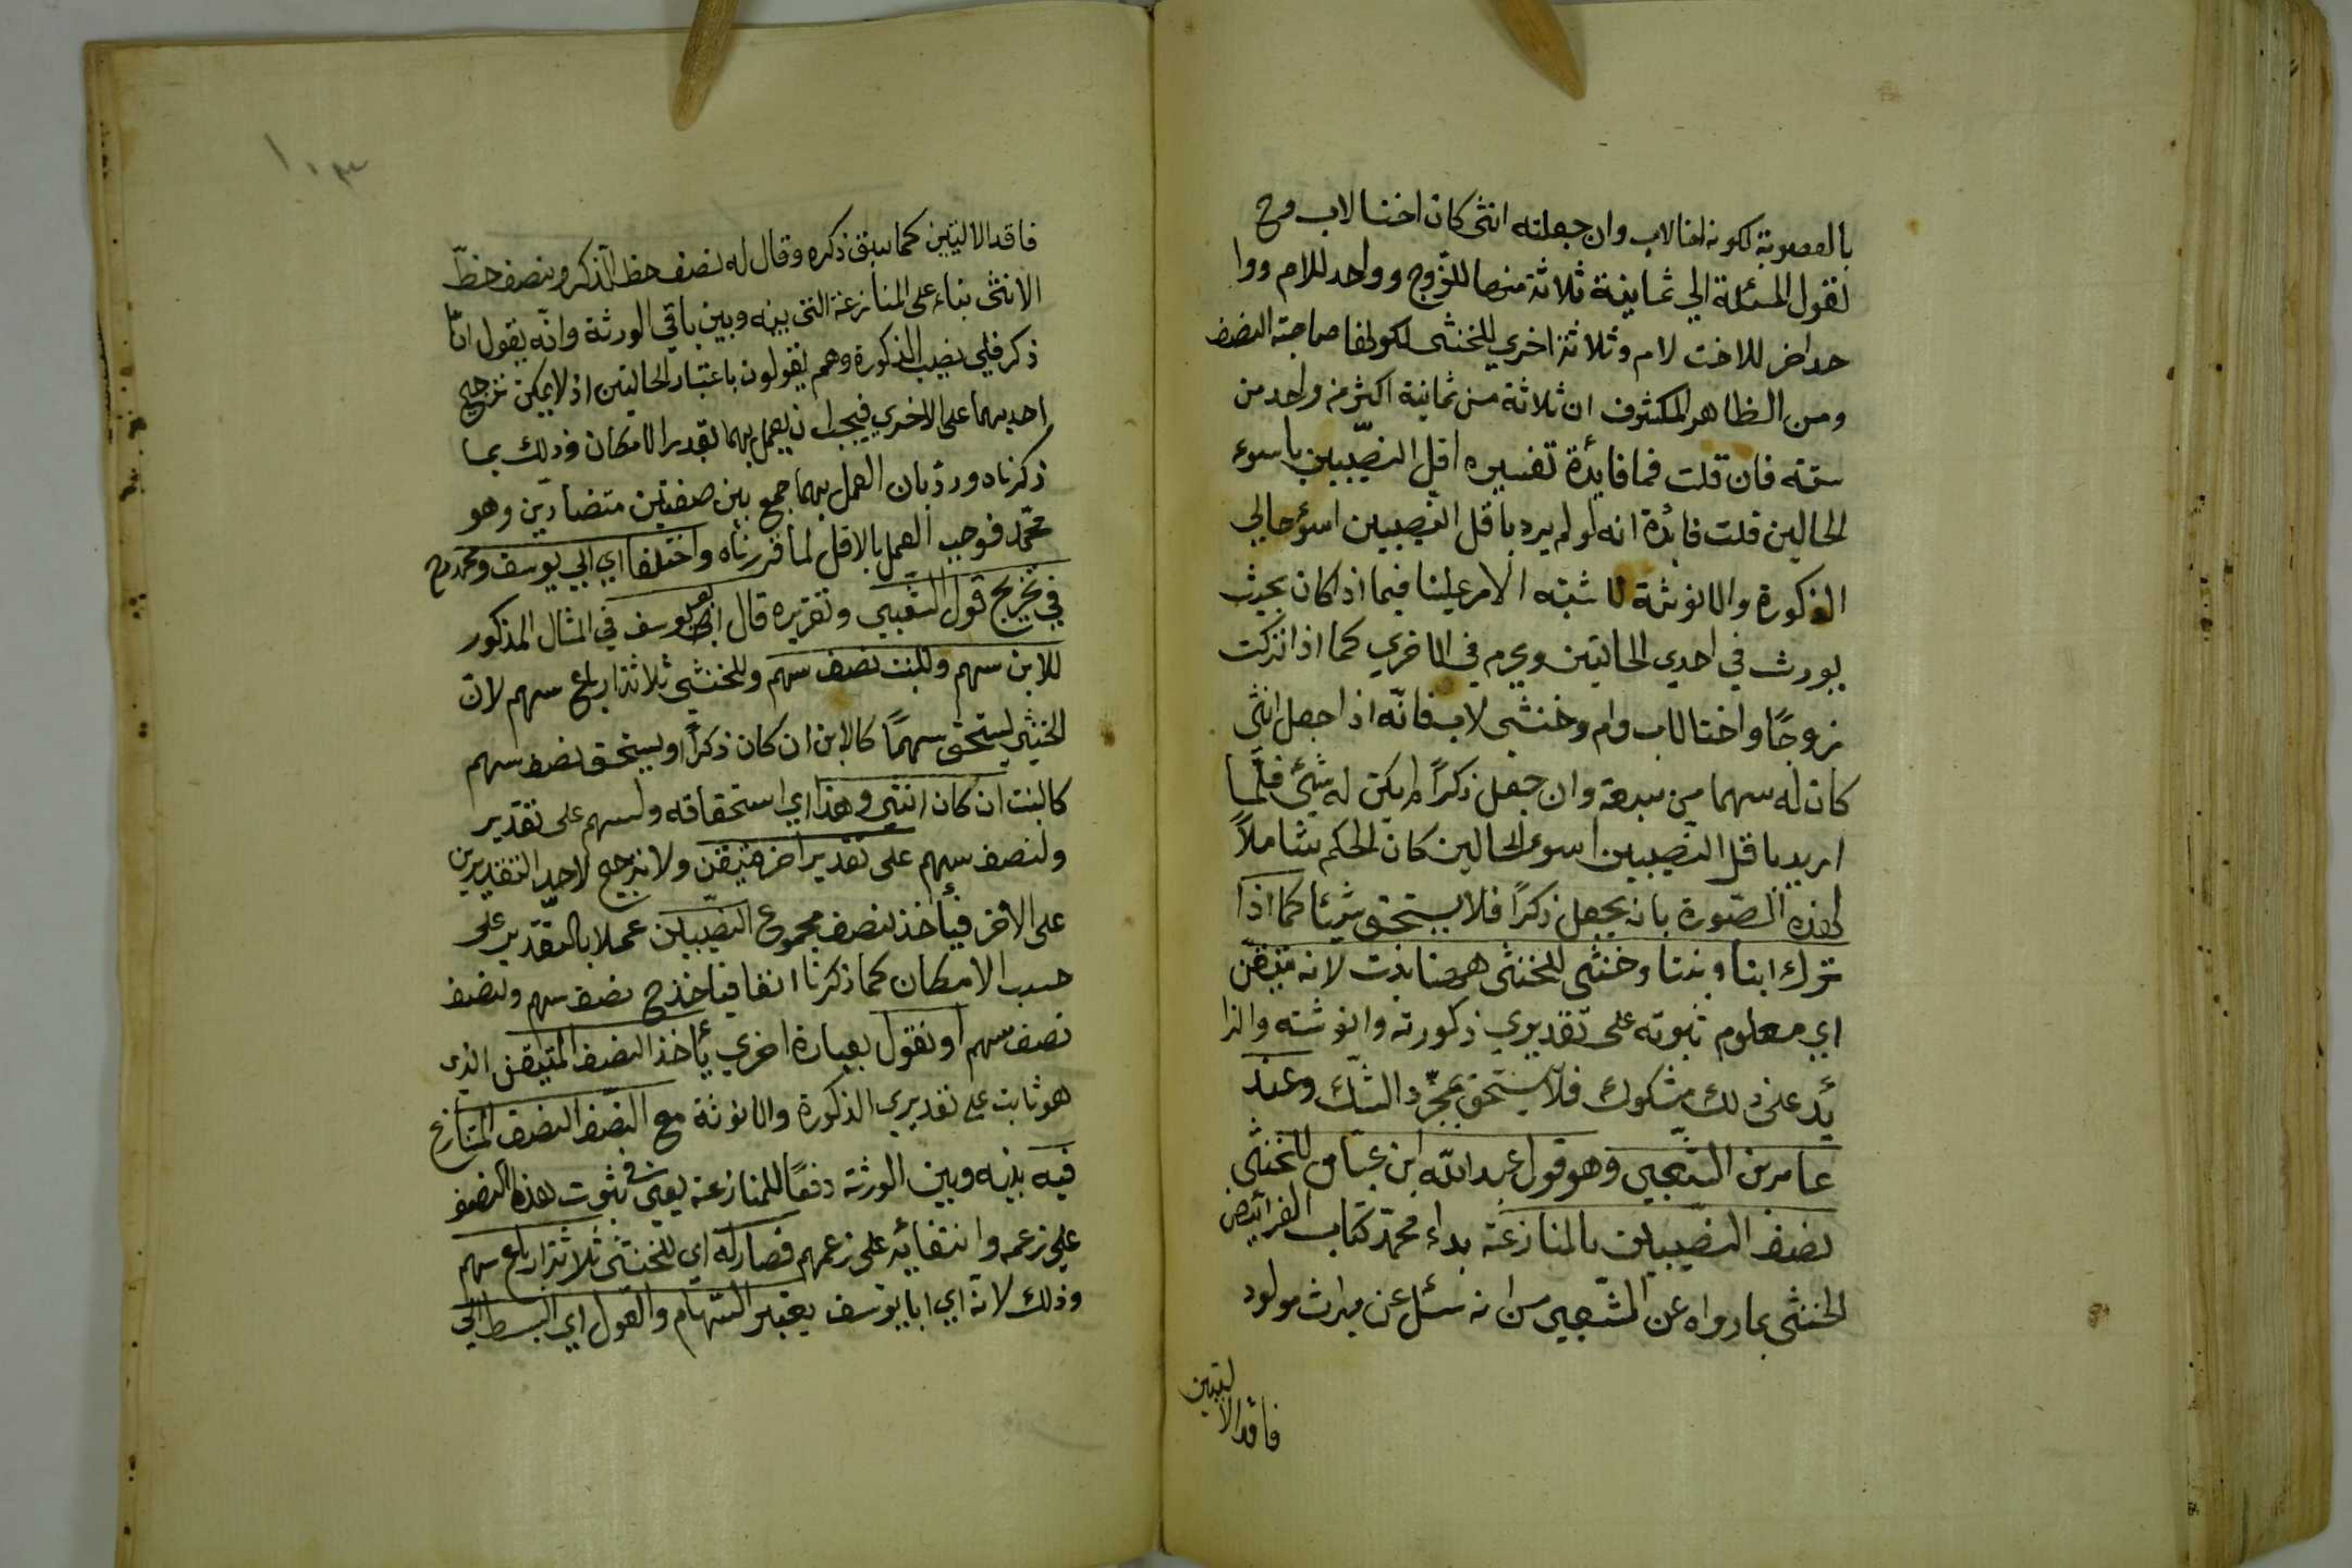 بالعصوبة لكونه اخا لاب وان جعلته انثى كان اختا لاب وح
نقول المسئلة الي ثمانية ثلاثة منها للزوج وواحد للام ووا
حد اخر للاخت لام وثلاثة اخري للخنثى لكونها صاحبة النصف
ومن الظاهر المكشوف ان ثلاثة من ثمانية اكثر من واحد من
ستة فان قلت فما فايدة تفسيره اقل النصيبين باسوء
الحالين قلت فائدة انه لو لم يرد باقل النصيبين اسوء حالي
الذكورة والانوثة لاشتبه الامر علينا فيما اذا كان بحيث
يورث في احدي الحالتين ويحرم في الاخري كما اذا تركت
زوجًا واختا لاب وام وخنثى لاب فانّه اذا جعل انثى
كان له سهما من سبعة وان جعل ذكرًا لم يكن له شئ فلمّا
اريد باقل النصيبين اسوء الحالين كان الحكم شاملاً
لهذه الصّورة بانه يجعل ذكرًا فلا يستحق شيئا كما اذا
ترك ابنا وبنتا وخنثى للخنثى ههنا بنت لانه متيقّن
اي معلوم ثبوته على تقديري ذكورته وانوثته والزا
يد على ذلك مشكوك فلا يستحق بمجرّد الشك وعند
عامر بن الشعبي وهو قول عبد الله ابن عباس للخنثى
نصف النصيبين بالمنازعة بداء محمّد كتاب الفرائض
الخنثى بما رواه عن الشعبي من انه سئل عن ميراث مولود
فاقد الاليتين
١٠٣
فاقد الاليتين كما سبق ذكره وقال له نصف حظ الذكر ونصف حظّ
الانثى بناء على المنازعة التي بينه وبين باقي الورثة وانّه يقول انا
ذكر فلي نصيب الذكورة وهم يقولون باعتبار الحالتين اذ لا يمكن ترجيح
احديهما على الاخري فيجب ان يعمل بهما بقدر الامكان وذلك بما
ذكرناه وردّ بان العمل بهما جمع بين صفتين متضادّين وهو
محمّد فوجب العمل بالاقل لما قررناه واختلفا اي ابي يوسف ومحمد رح
في تخريج قول الشعبي وتقريره قال ابو يوسف في المثال المذكور
للابن سهم وللبنت نصف سهم وللخنثى ثلاثة ارباع سهم لانّ
الخنثى يستحق سهمًا كالابن ان كان ذكرًا ويستحق نصف سهم
كالبنت ان كان انثى وهذا اي استحقاقه ولسهم على تقدير
ولنصف سهم على تقدير اخر متيقن ولا ترجيح لاحد التقديرين
على الآخر فيأخذ نصف مجموع النصيبين عملا بالتقدير على
حسب الامكان كما ذكرنا انفا فيأخذ ح نصف سهم ونصف
نصف سهم او نقول بعبارة اخري يأخذ النصف المتيقن الذي
هو ثابت على تقديري الذكورة والانوثة مع النصف النصف المتنازع
فيه بينه وبين الورثة دفعًا للمنازعة يعني في ثبوت هذه النصف
علي زعمه وانتفائه على زعمهم فصار له اي للخنثى ثلاثة ارباع سهم
وذلك لانّه اي ابا يوسف يعتبر السّهام والعول اي البسط الي